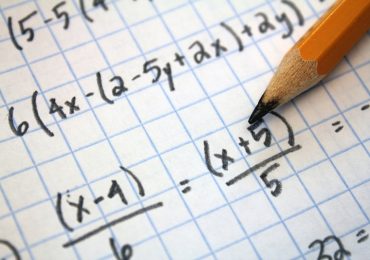 (5-5(4
6(4x-(2-5y+2x)+2y)
(x-4)/6 = (x+5)/5 = -
32 =